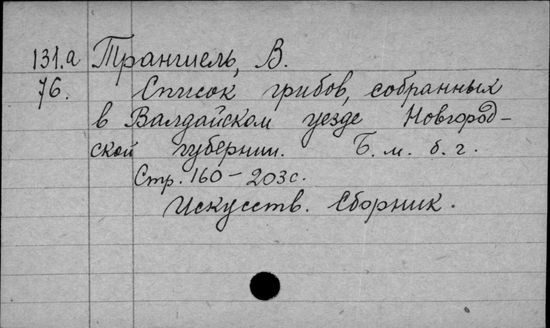 131.а Траншель, В.
76. Список грибов, собранных
в Валдайском уезде Новгород-
ской губернии. Б. м. б. г.
Стр. 160-203с.
Искусств. Сборник.